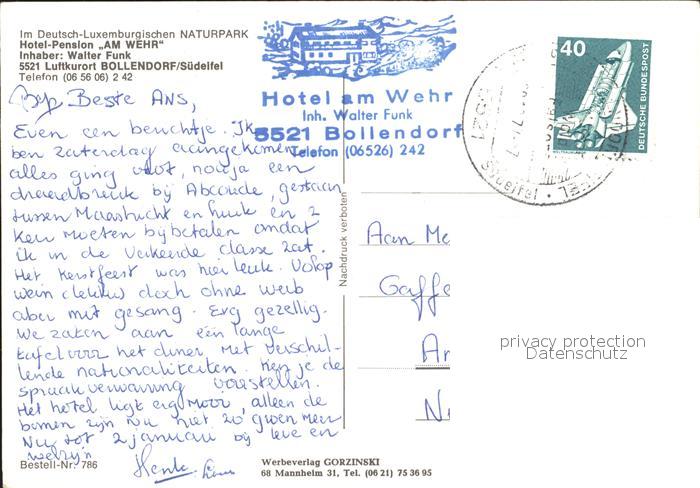 Im Deutsch-Luxemburgischen NATURPARK
Hotel-Pension „AM WEHR"
Inhaber: Walter Funk
5521 Luftkurort BOLLENDORF/Südeifel
Telefon (06 56 06) 2 42
Hotel am Wehr
Inh. Walter Funk
5521 Bollendorf
Telefon (06526) 242
40
DEUTSCHE BUNDESPOST
5521
Südeifel
Beste ANS,
Even een berichtje. Ik
ben zaterdag aangekomen
alles ging vlot, nou ja een
draadbreuk bij Abcoude, gestaan
tussen Maastricht en Luik en 2
keer moeten bijbetalen omdat
ik in de verkeerde classe zat.
Het kerstfeest was hier leuk. Volop
wein doch ohne weib
aber mit gesang. Erg gezellig.
We zaten aan een lange
tafel voor het diner, met verschil-
lende nationaliteiten. Ken je de
spraakverwarring voorstellen.
Het hotel ligt erg mooi, alleen de
bomen zijn nu niet zo groen meer
Nu, tot 2 januari bij leve en
welzijn
Henk
Nachdruck verboten
Aan Me
Gaffe
A
N
privacy protection
Datenschutz
Bestell-Nr. 786
Werbeverlag GORZINSKI
68 Mannheim 31, Tel. (06 21) 75 36 95